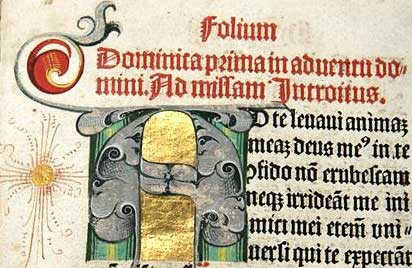 Folium
Dominica prima in aduentu do-
mini. Ad missam Introitus.
AD te leuaui animaȝ
meaȝ deus meꝰ in te
ↄfido nō erubescam
neqȝ irrideāt me ini
mici mei eteñ vni-
uersi qui te expectāt